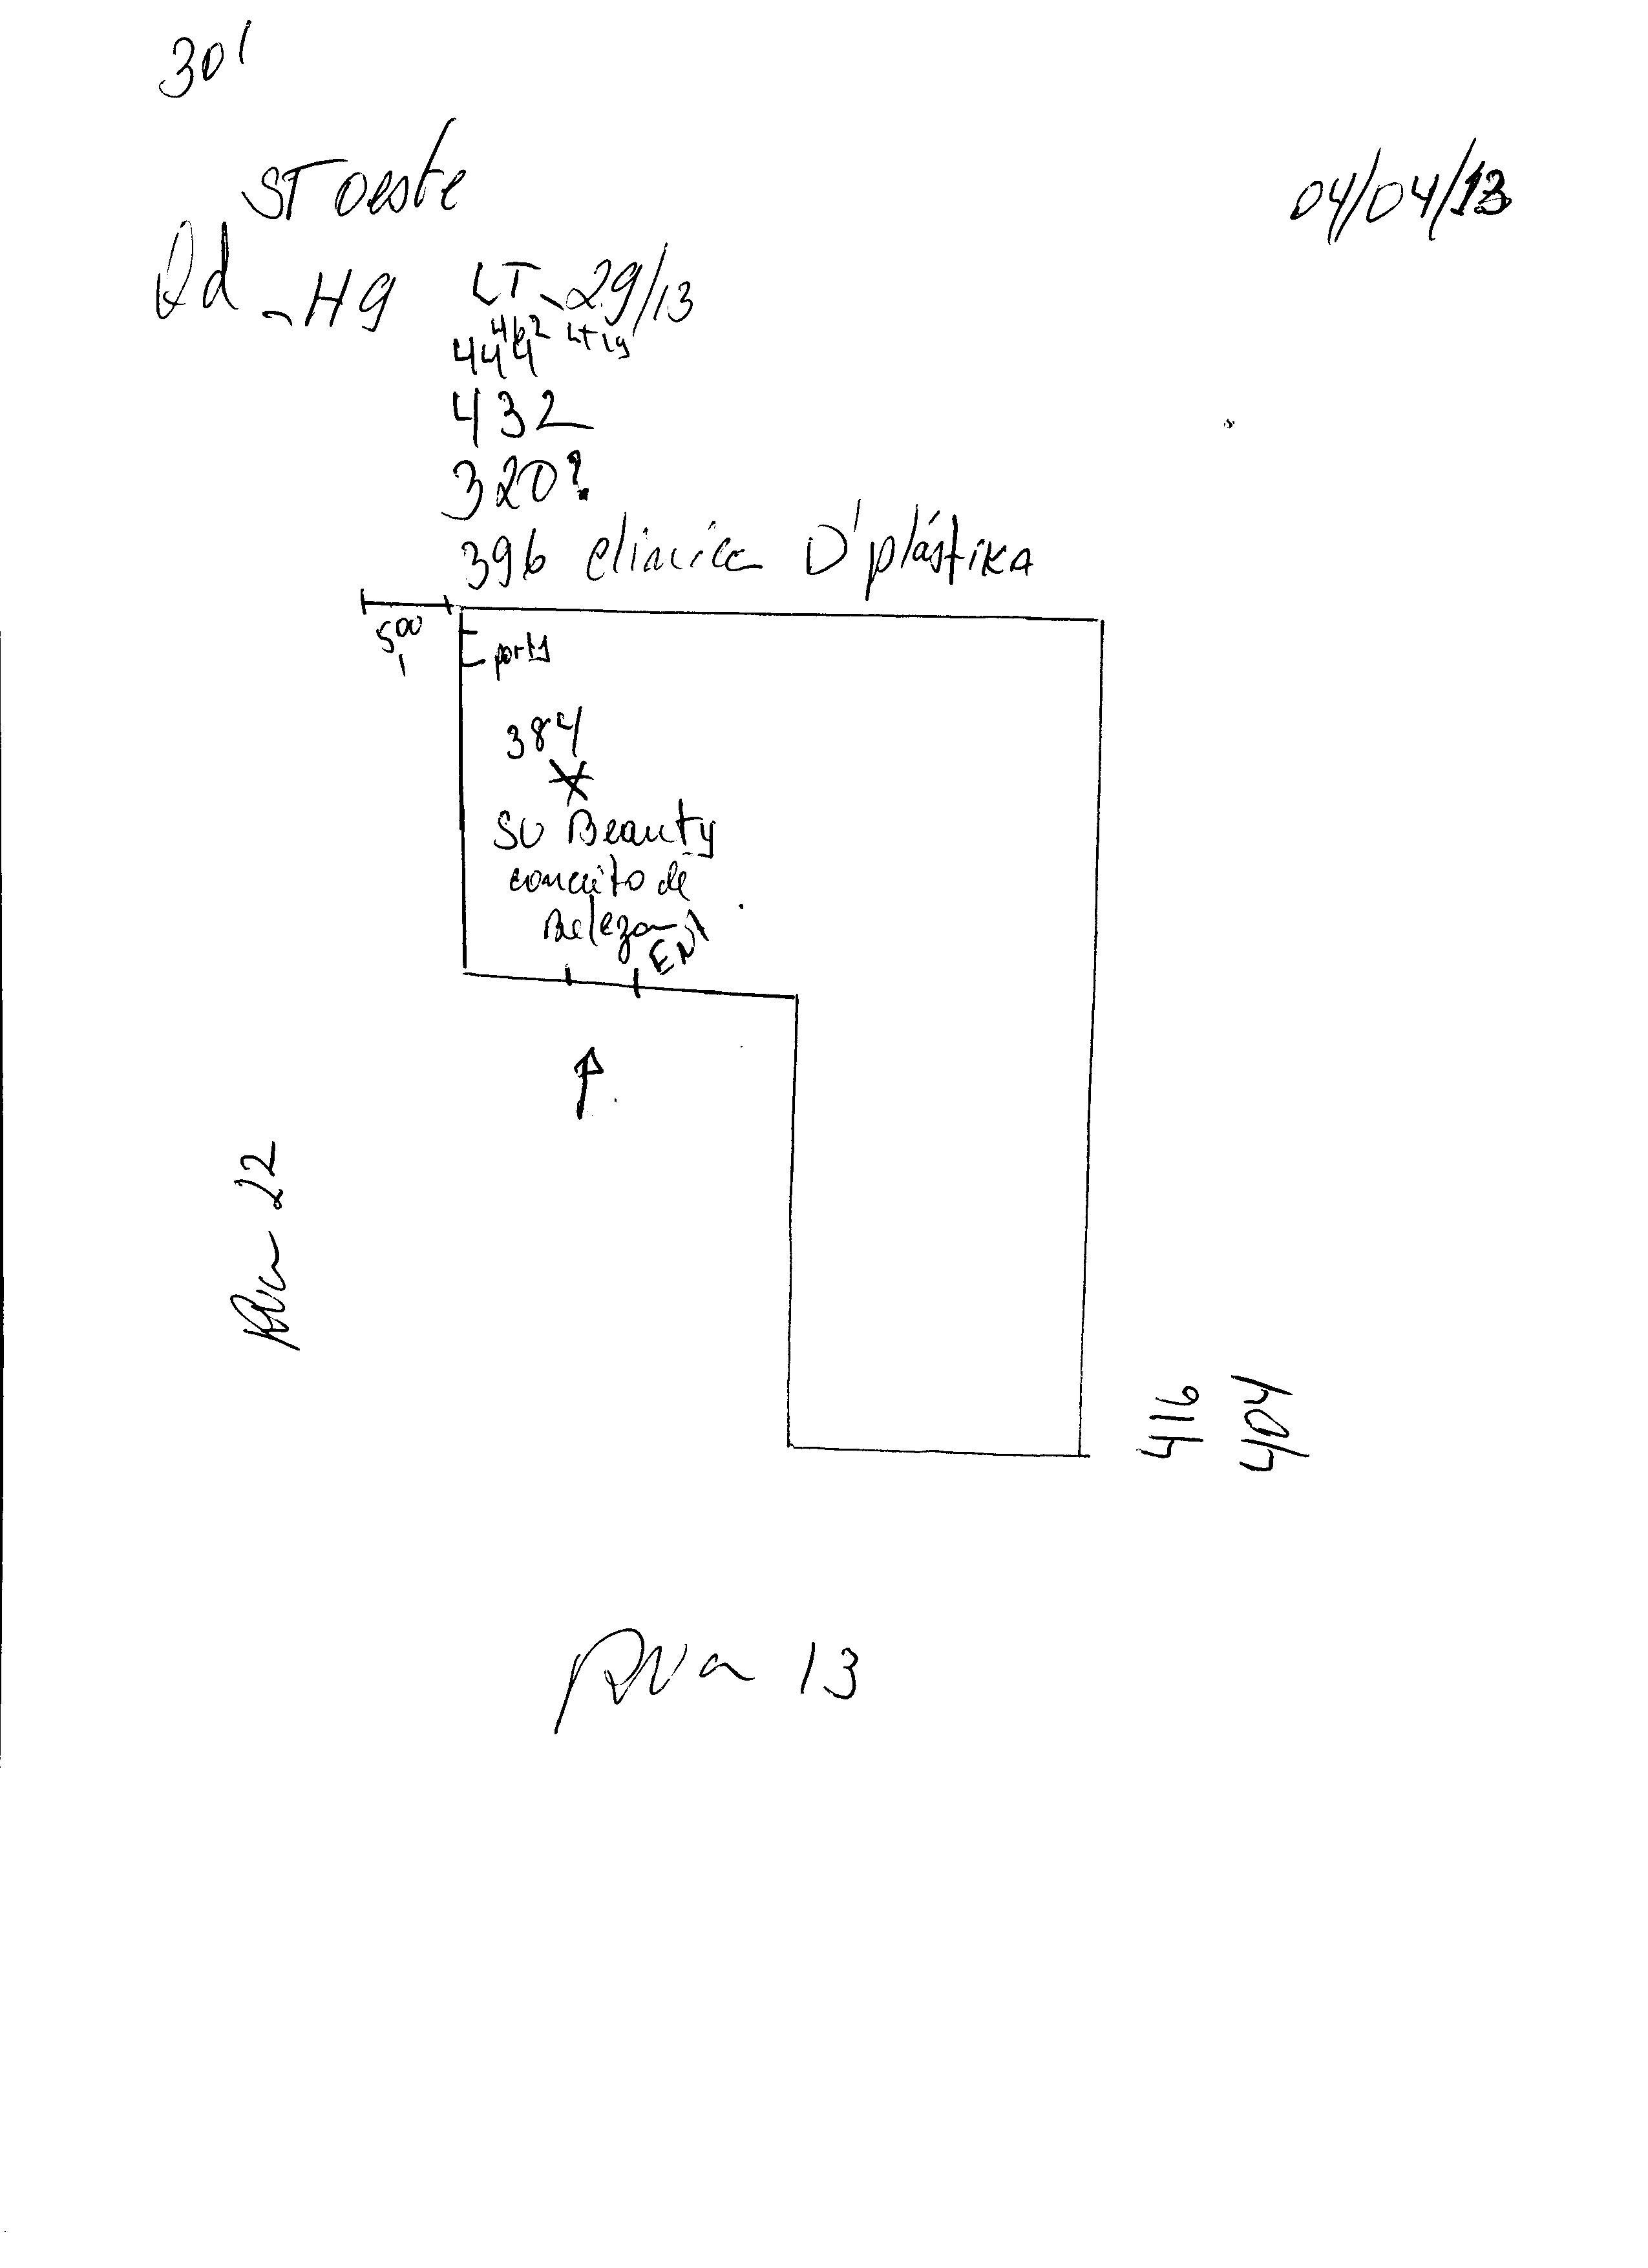 301
ST oeste
04/04/13
Qd - H9 LT - 29/13
462 LT 19
444
432
320?
396 clinica D'plástika
5,00
porta
384
X
SU Beauty
conceito de
Beleza
ENT
Rua 22
416
404
Rua 13